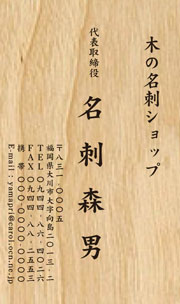 木の名刺ショップ
代表取締役
名刺森男
〒八三一-〇〇〇五
福岡県大川市大字向島二〇一三-二
TEL 〇九四四-八八-四〇二六
FAX 〇九四四-八八-二五五三
携帯 〇〇〇-〇〇〇〇-〇〇〇〇
E-mail:yamapri@carol.ocn.ne.jp